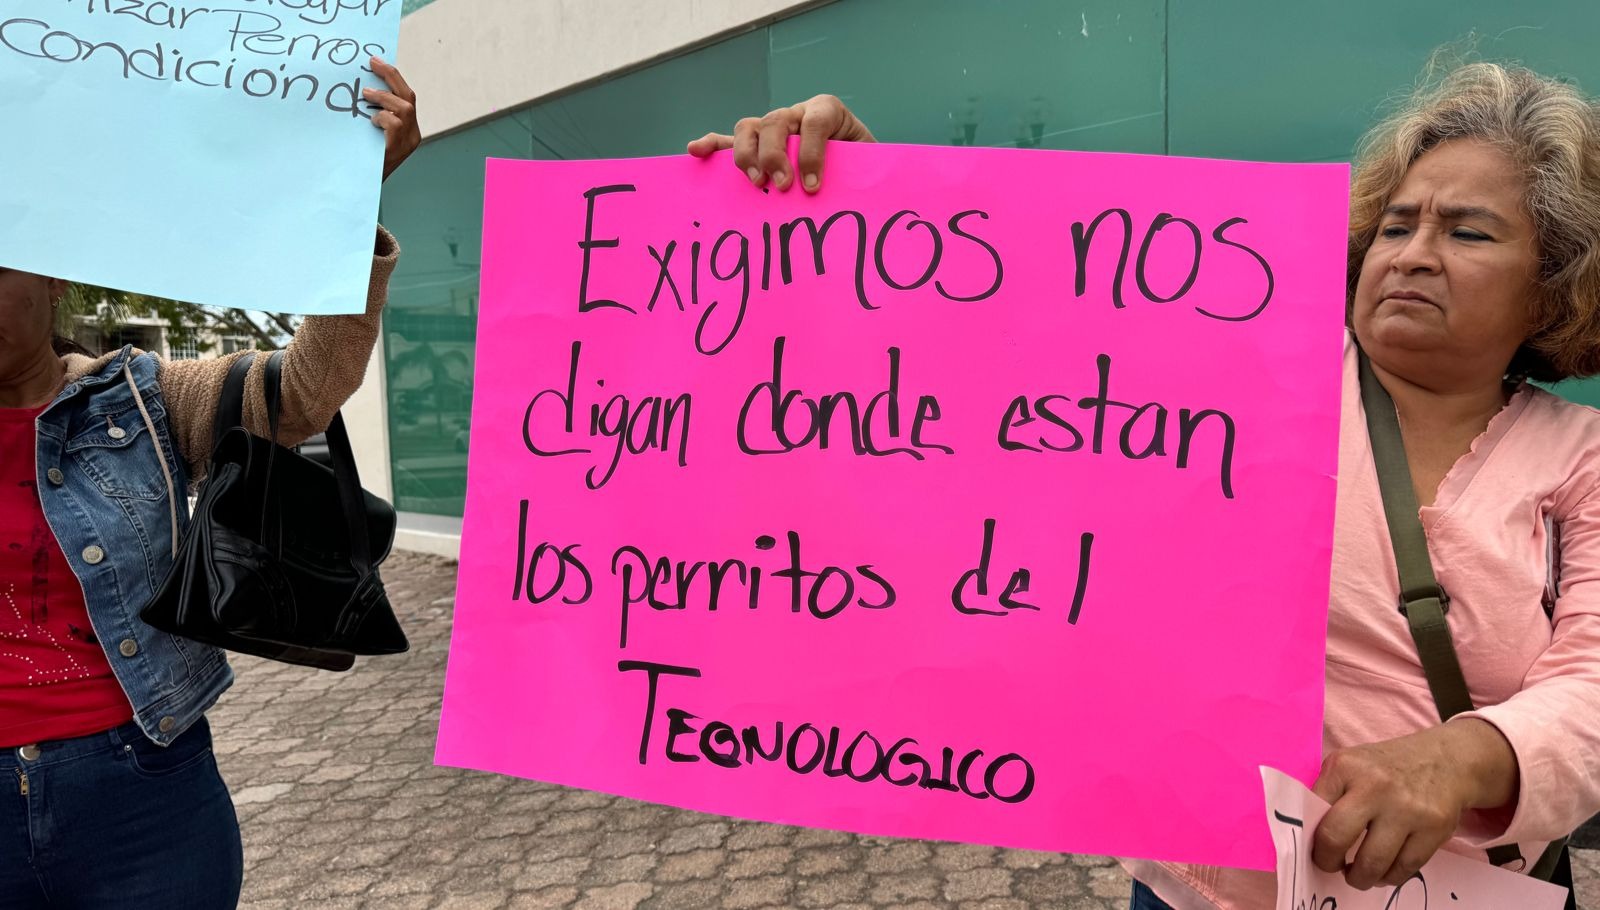 Perros
Condición de
Exigimos nos
digan donde estan
los perritos del
TEGNOLOGICO